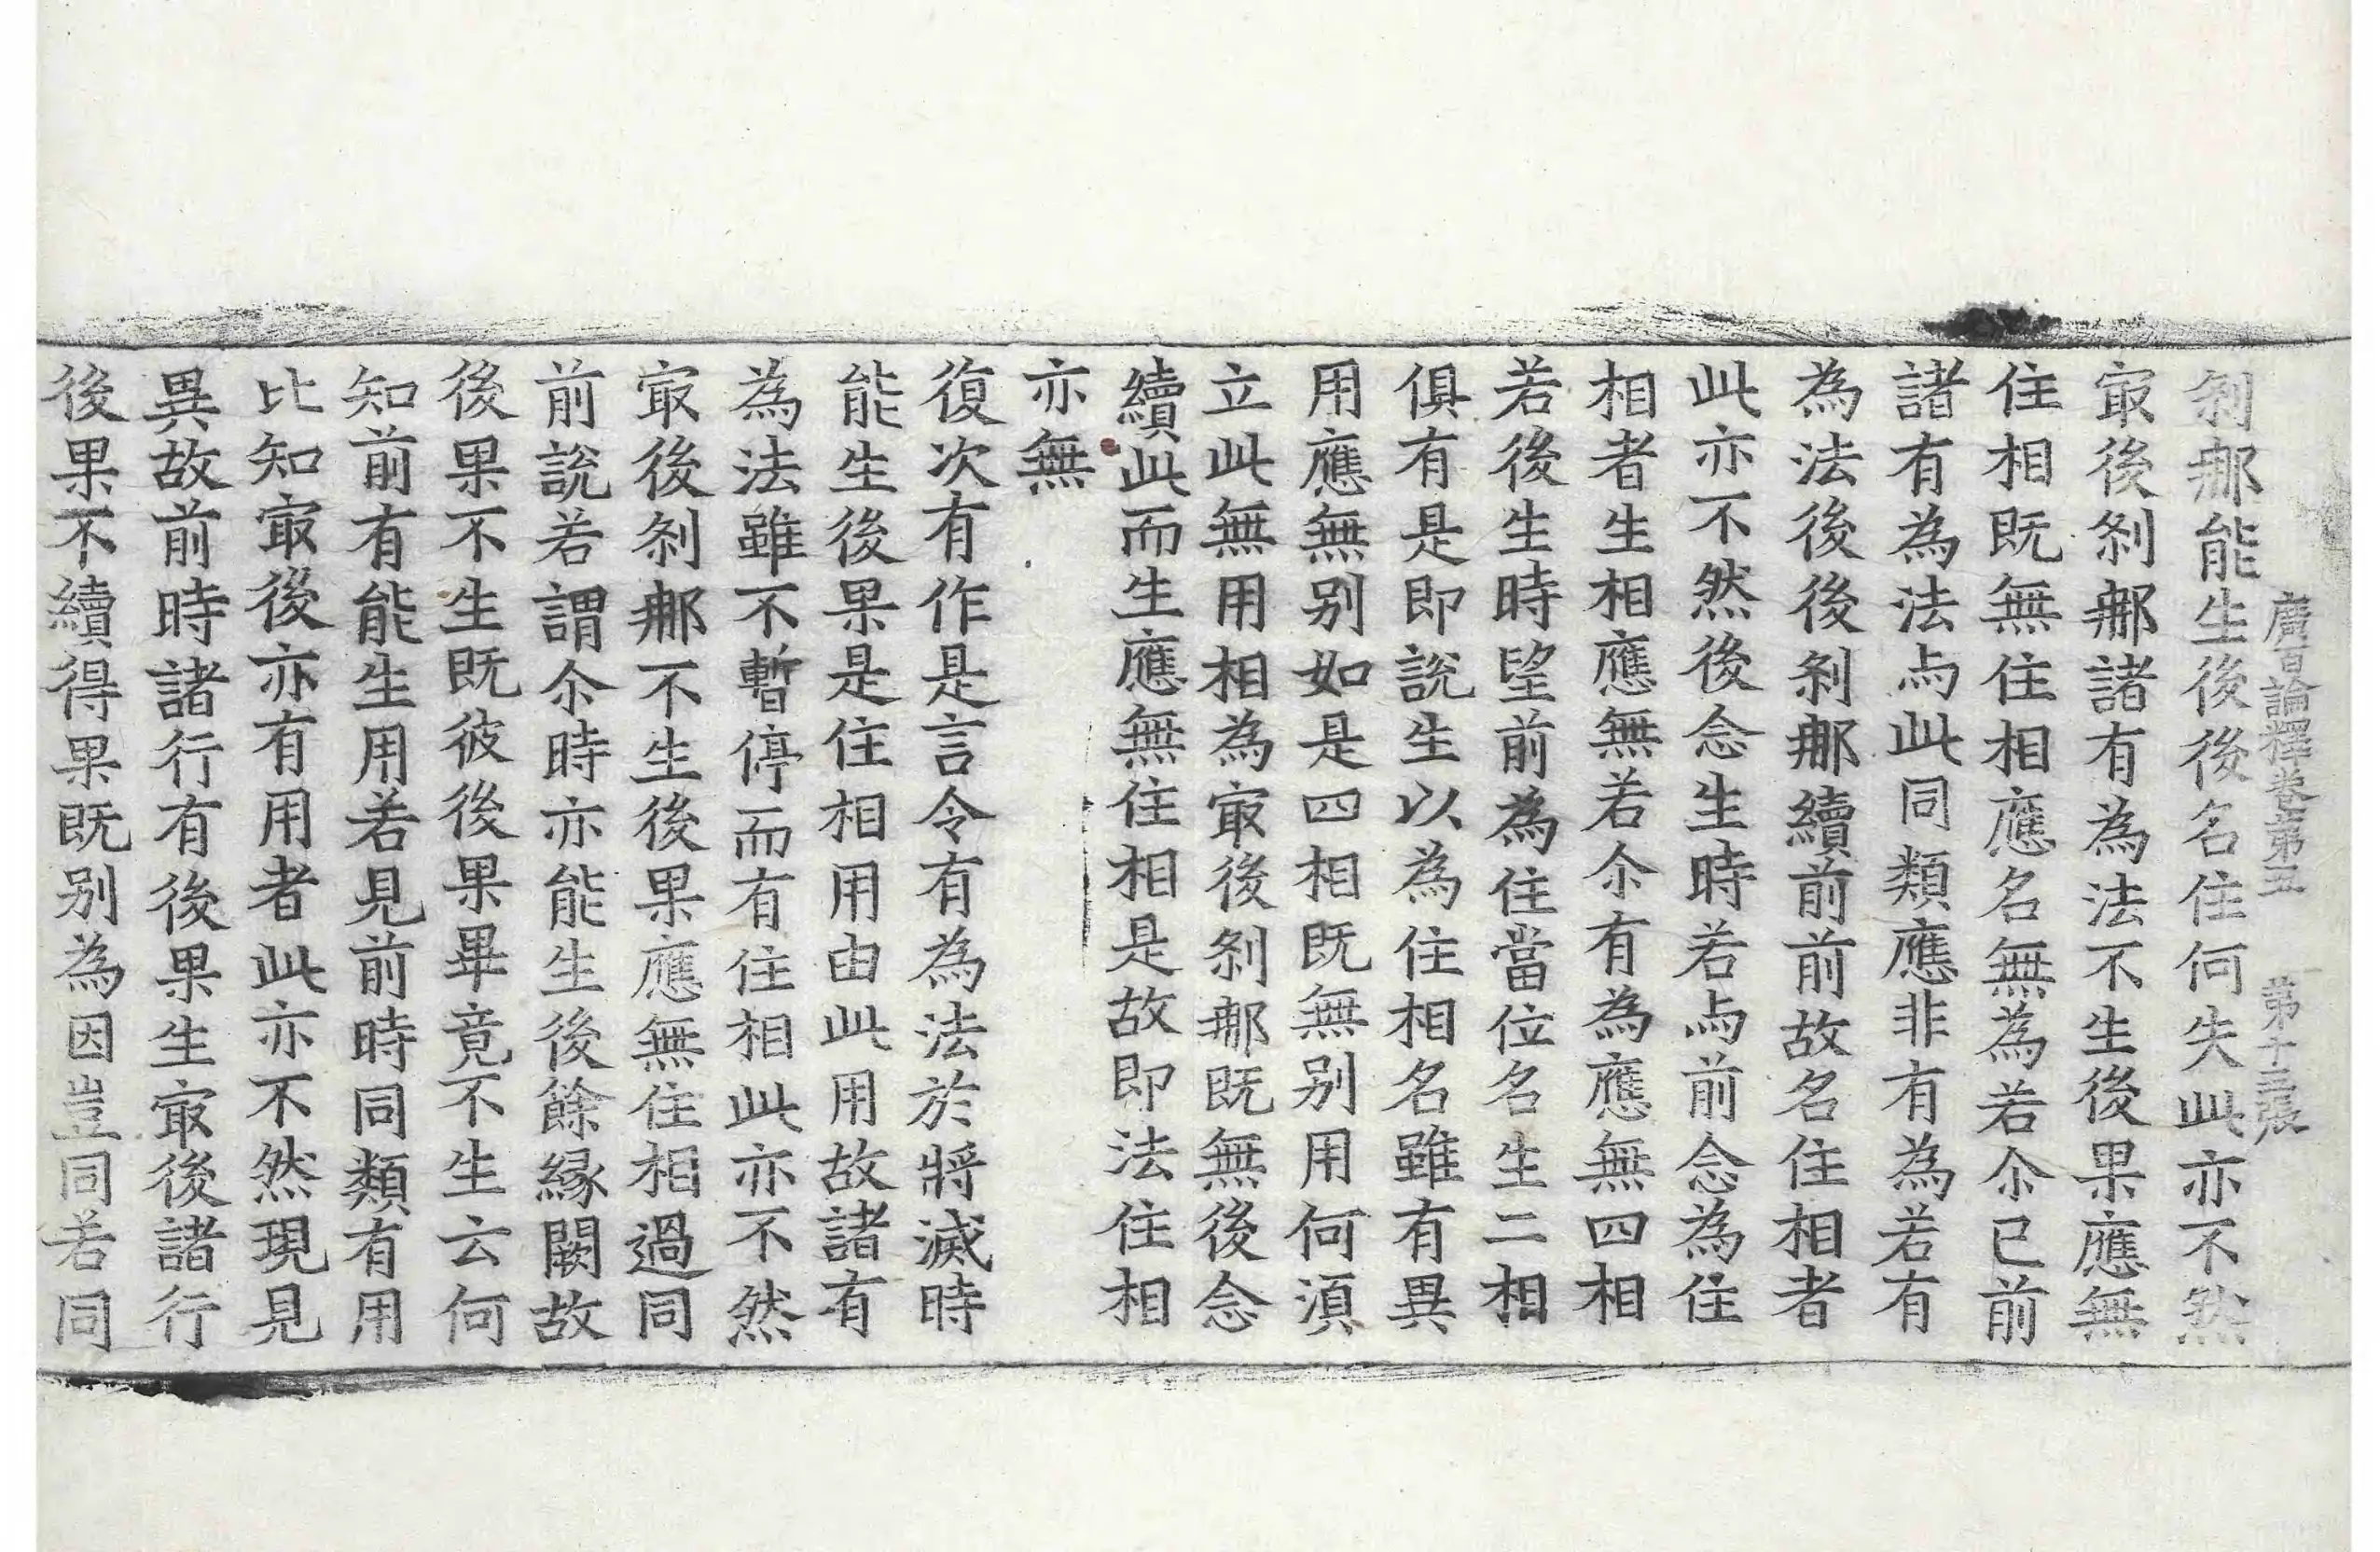 廣百論釋卷第五 第十三張
刹𨚗能生後後名住何失此亦不然
㝡後刹𨚗諸有為法不生後果應無
住相既無住相應名無為若尒已前
諸有為法与此同類應非有為若有
為法後後刹𨚗續前前故名住相者
此亦不然後念生時若与前念為住
相者生相應無若尒有為應無四相
若後生時望前為住當位名生二相
俱有是即說生以為住相名雖有異
用應無别如是四相既無别用何湏
立此無用相為㝡後刹𨚗既無後念
續此而生應無住相是故即法住相
亦無
復次有作是言令有為法於將滅時
能生後果是住相用由此用故諸有
為法雖不暫停而有住相此亦不然
㝡後刹𨚗不生後果應無住相過同
前說若謂尒時亦能生後餘縁闕故
後果不生既彼後果畢竟不生云何
知前有能生用若見前時同類有用
比知㝡後亦有用者此亦不然現見
異故前時諸行有後果生㝡後諸行
後果不續得果既别為因豈同若同